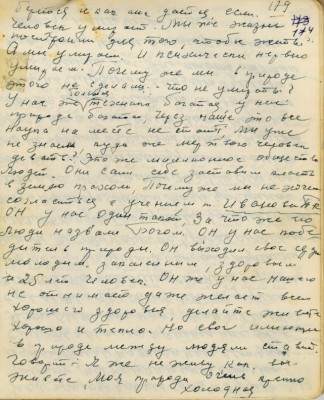 179
174
человек умирает. Мы же жизнь
построили для того, чтобы жить?
А мы умираем. И психически нервно
умираем. Почему же мы в природе
этого не сделали что не умирать?
У нас же техника богатая у нас
природа богатая, через наше это все
Наука на месте не стоит. Мы уже
не знаем куда же мертвого человека
девать? Это же миллионное общество
людей. Они сами себе заставили ложиться
в землю прахом, Почему же мы не хочем
согласиться с учением Иванова П.К.
Он у нас один такой. За что же его
Люди назвали Богом. Он у нас побе
дитель природы. Он выходил свое сердце
молодым, закаленным, здоровым
25 лет человека. Он же у нас ничего
не отнимает даже желает всем
хорошего здоровья делайте живите
хорошо и тепло. Но свое имеется
в природе между людьми ставит.
Говорит: Я же не живу как вы
живете Моя природа очень крепко
холодная